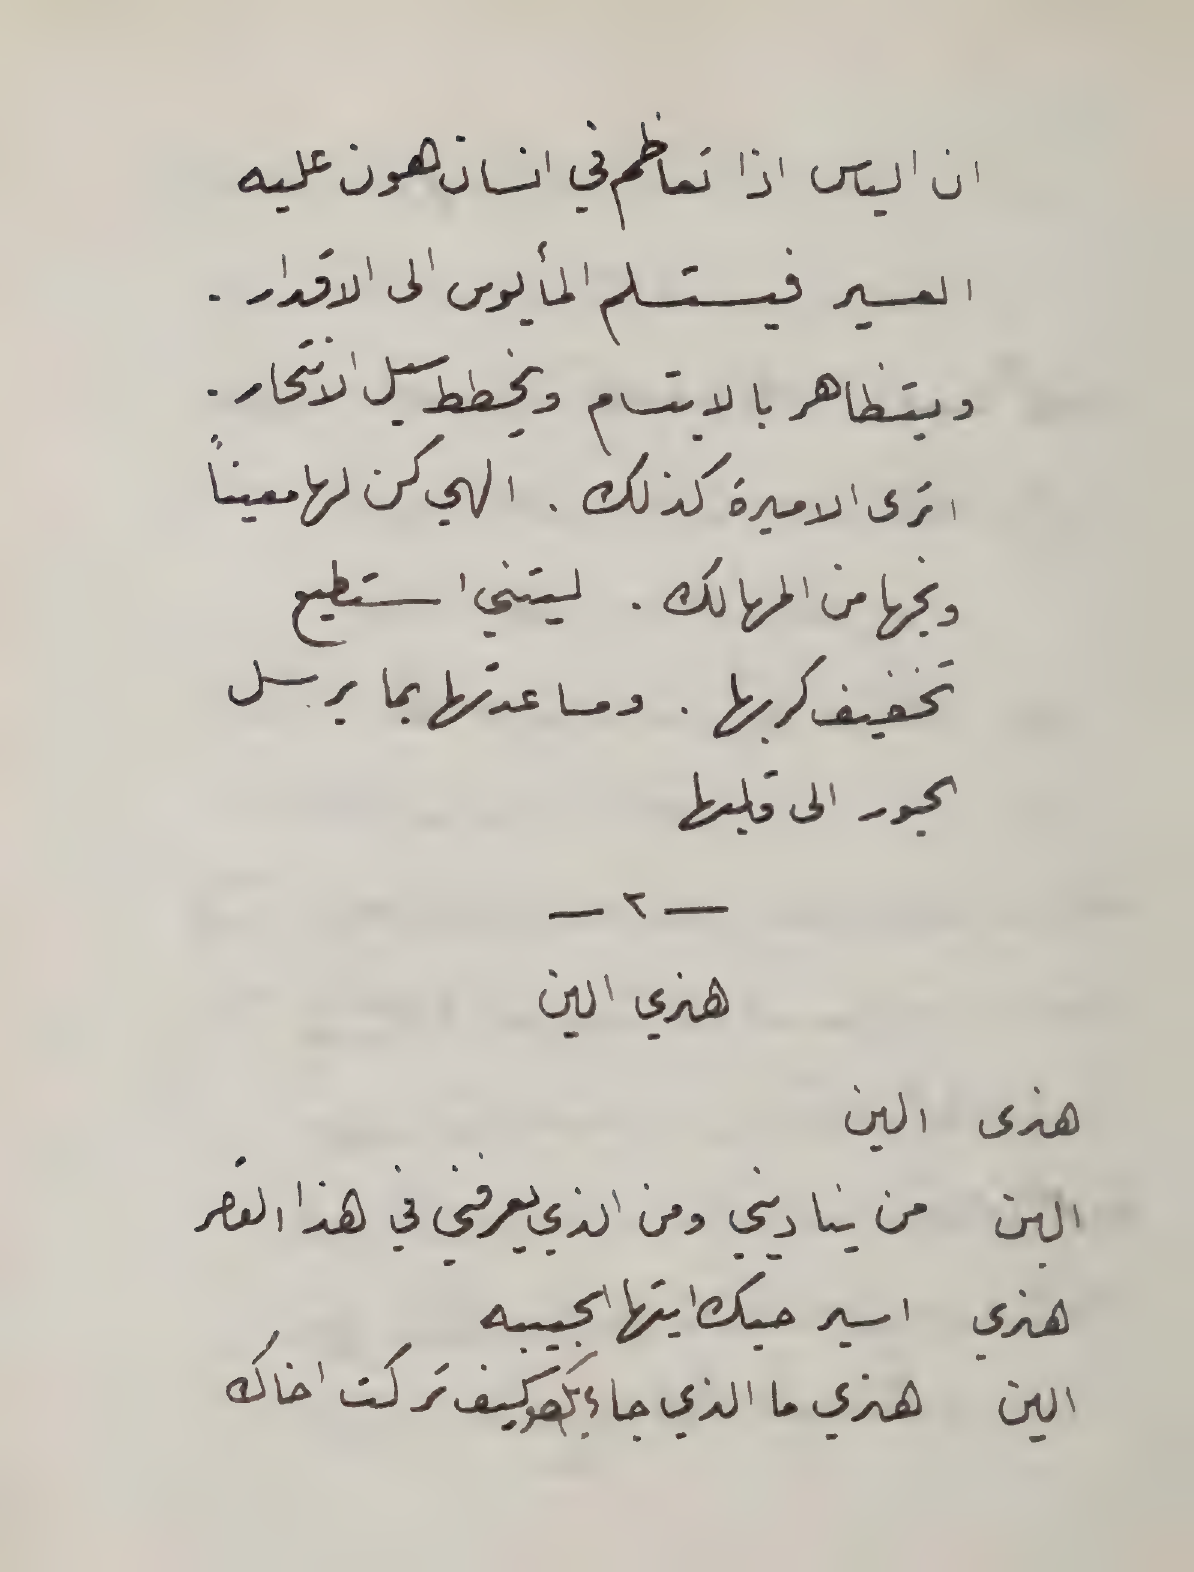 ان اليأس اذا تعاظم في انسان هون عليه
العسير فيستسلم المأيوس الى الاقدار .
ويتظاهر بالابتسام ويخطط سبل الانتحار .
اترى الاميرة كذلك . الهي كن لها معيناً
ونجها من المهالك . ليتني استطيع
تخفيف كربها . ومساعدتها بما يرسل
الحبور الى قلبها
— ٢ —
هنري الين
هنرى الين
الين من يناديني ومن الذي يعرفني في هذا القصر
هنري اسير حبك ايتها الحبيبه
الين هنري ما الذي جاء بك وكيف تركت اخاك